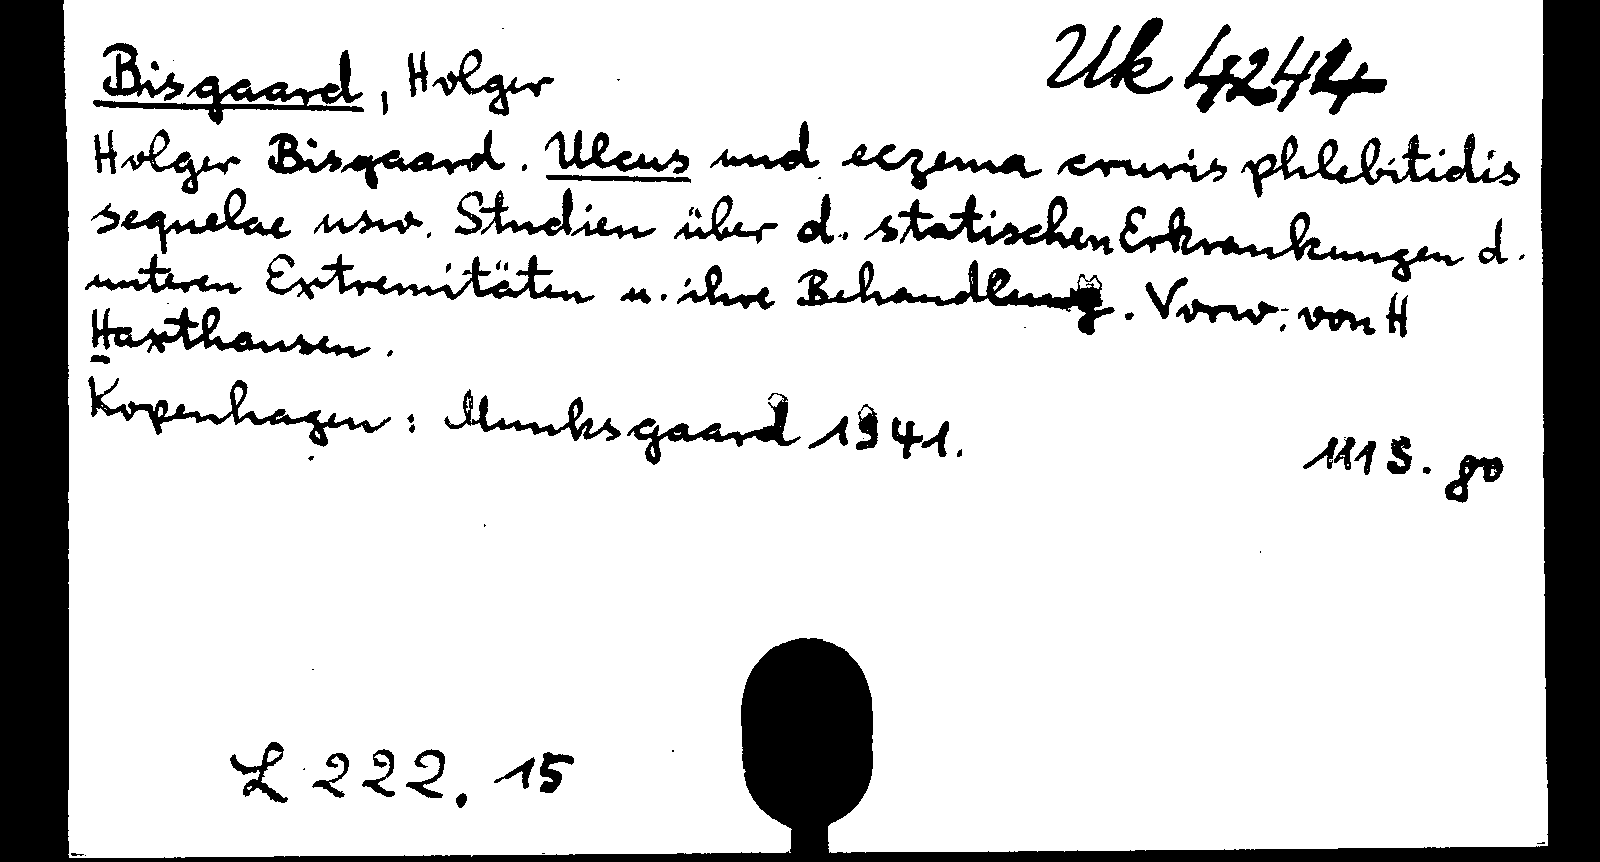 Uk 4244
Bisgaard, Holger
Holger Bisgaard. Ulcus und eczema cruris phlebitidis
sequelae usw. Studien über d. statischen Erkrankungen d.
unteren Extremitäten u. ihre Behandlung. Vorw. von H
Haxthausen.
Kopenhagen: Munksgaard 1941.
111 S. 8°
L 222.15